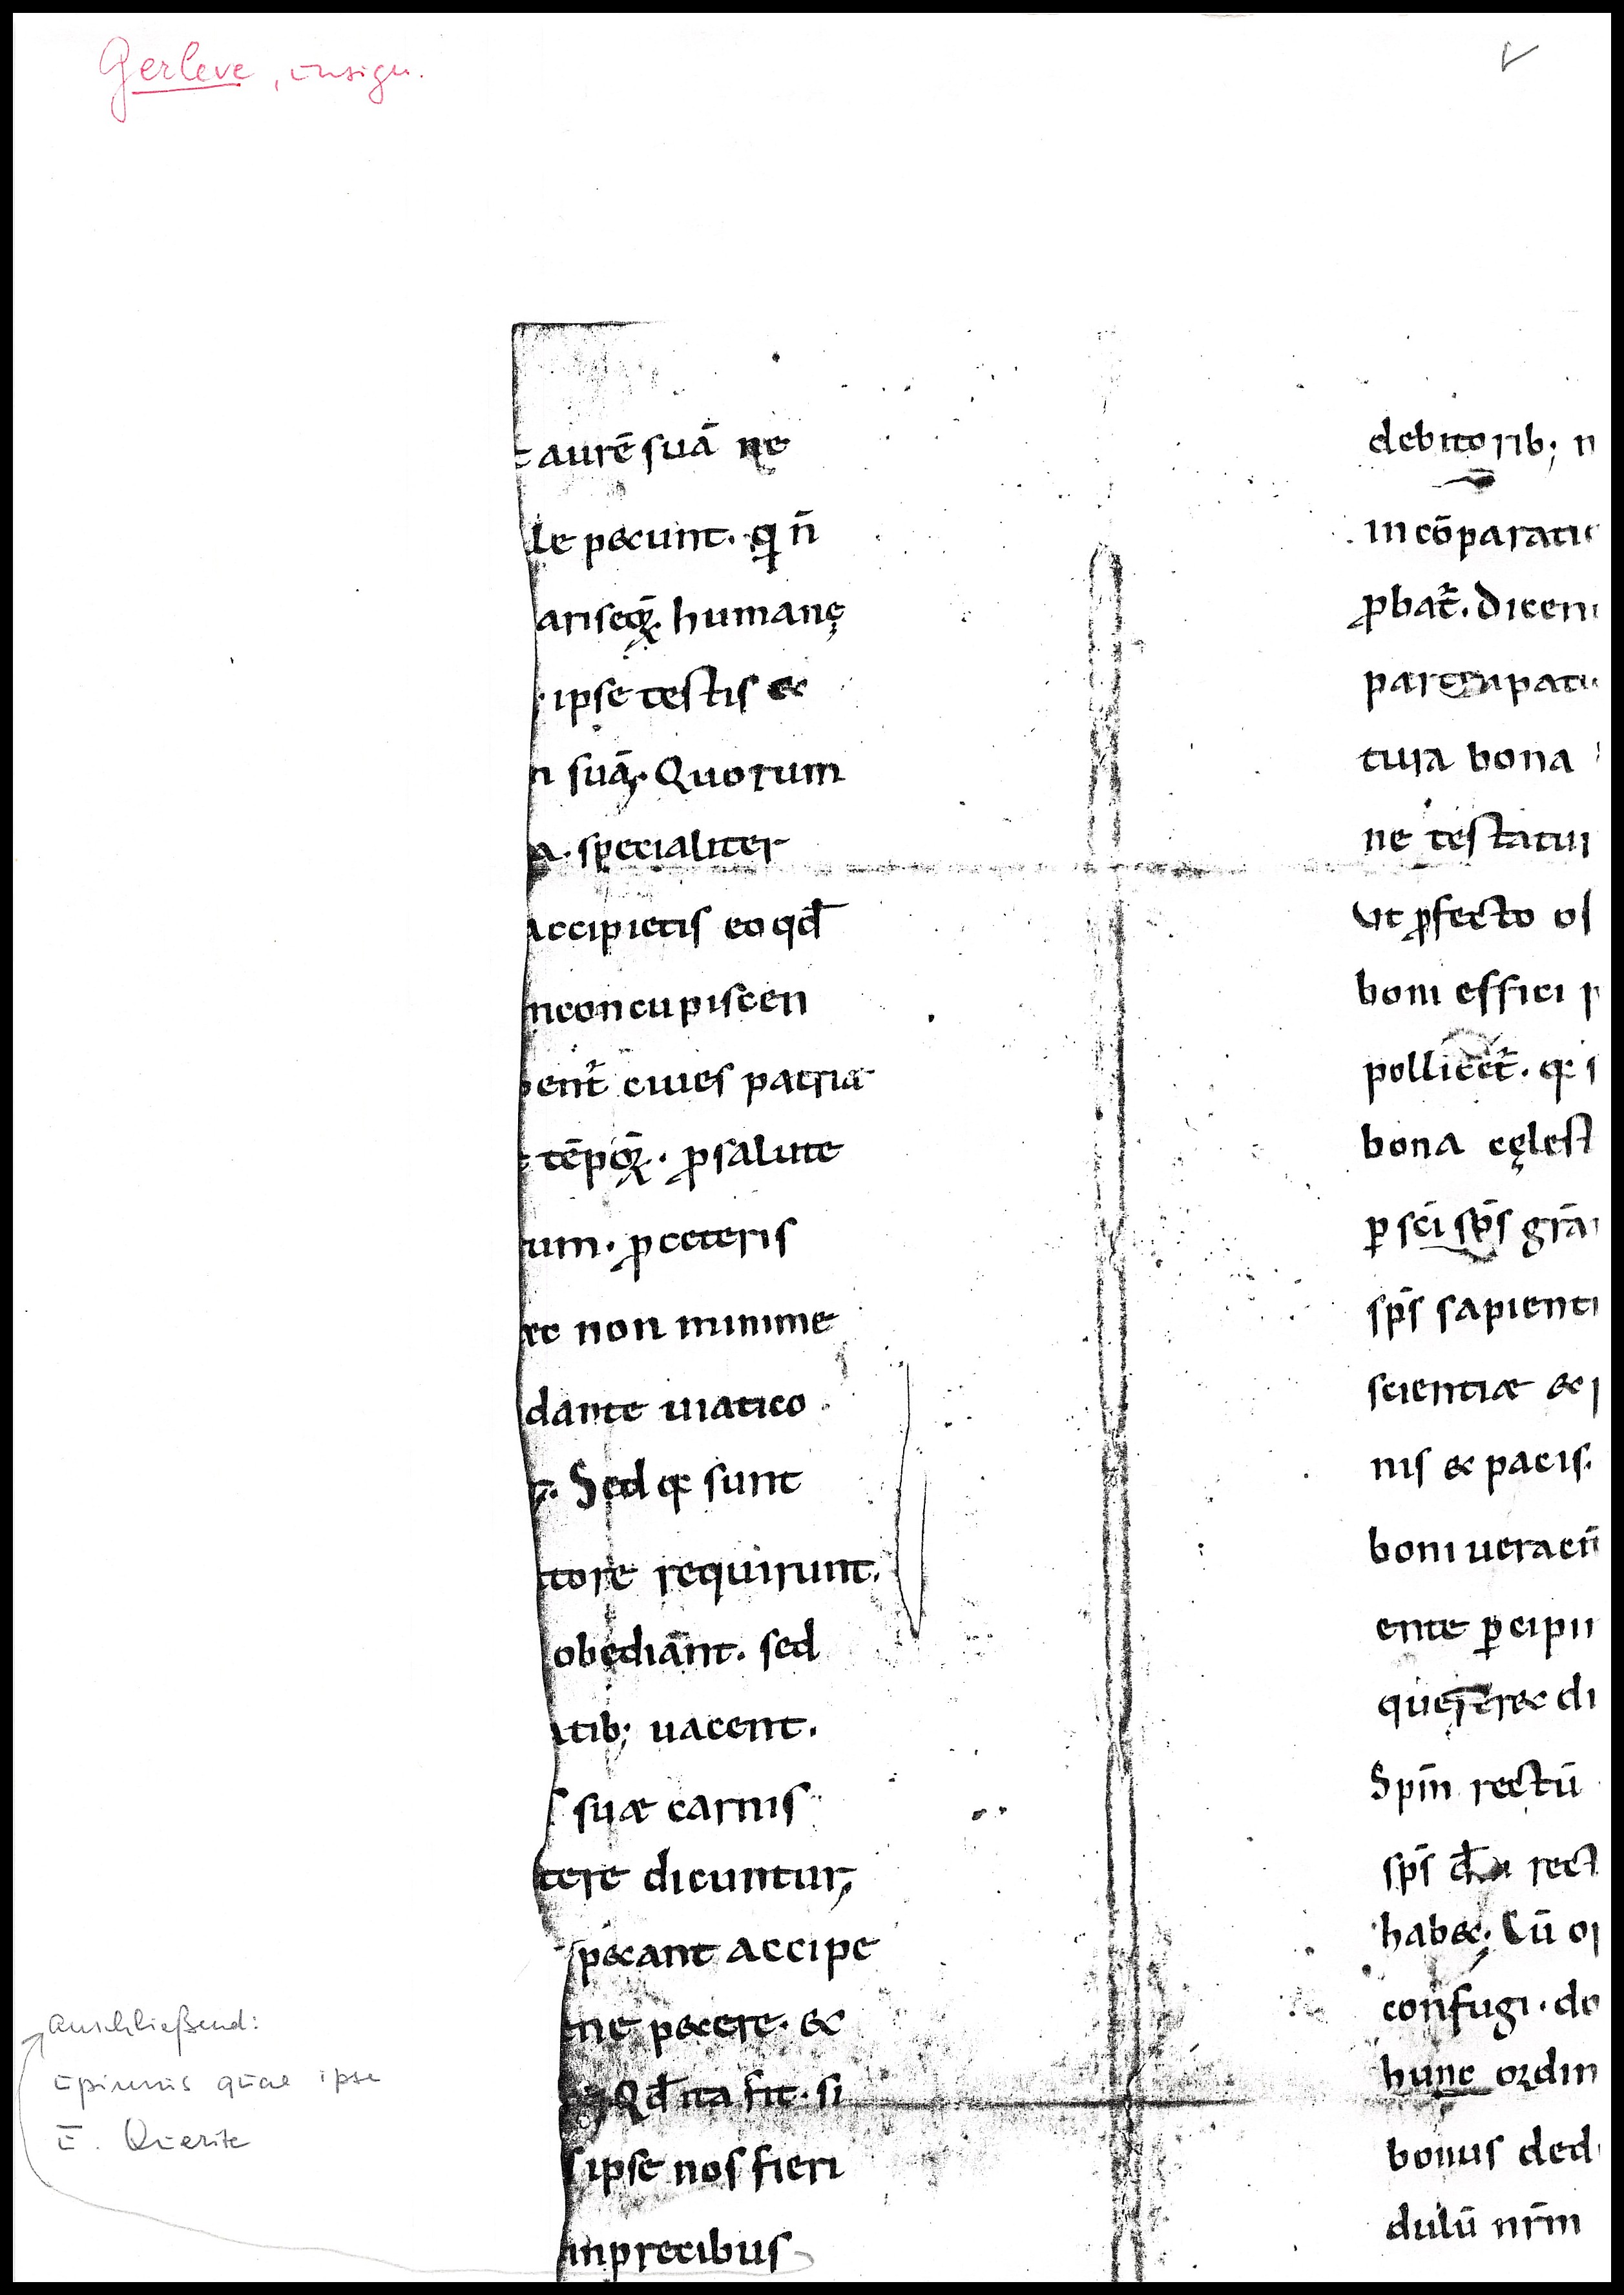 Gerleve, unsign.
t aurē suā ne
le pecunt. q n̄
ariseoꝝ. humanę
ipse testis &
n suā. Quorum
a. specialiter
accipietis eo qd̄
nconcupiscen
bent᷑ ciues patria
tēpoꝝ. ꝓ salute
um. ꝓ ceteris
ec non minime
dante uiatico
Sed q sunt
ctore requirunt.
obediant. sed
atib; uacent.
s suæ carnis
tere dicuntur,
p&ant accipe
ne p&ere. &
Qd̄ ita fit. si
s ipse nos fieri
inprecibus
debitorib; n
in cōparatio
ꝓbat᷑. Dicen
participatio
tura bona
ne testatur
Vt ꝓfecto os
boni effici p
pollicet᷑. q s
bona cęlest
ꝑ sc̄i sp̄s grā
sp̄s sapienti
scientiæ &
nis & pacis.
boni uera en̄
ente ꝑcipi
querer& di
Sp̄m rectū
sp̄s rect
hab&. Cū o
confugi. do
hunc ordin
bonus ded
dulū nr̄m
anschließend:
quae ipse
Querite